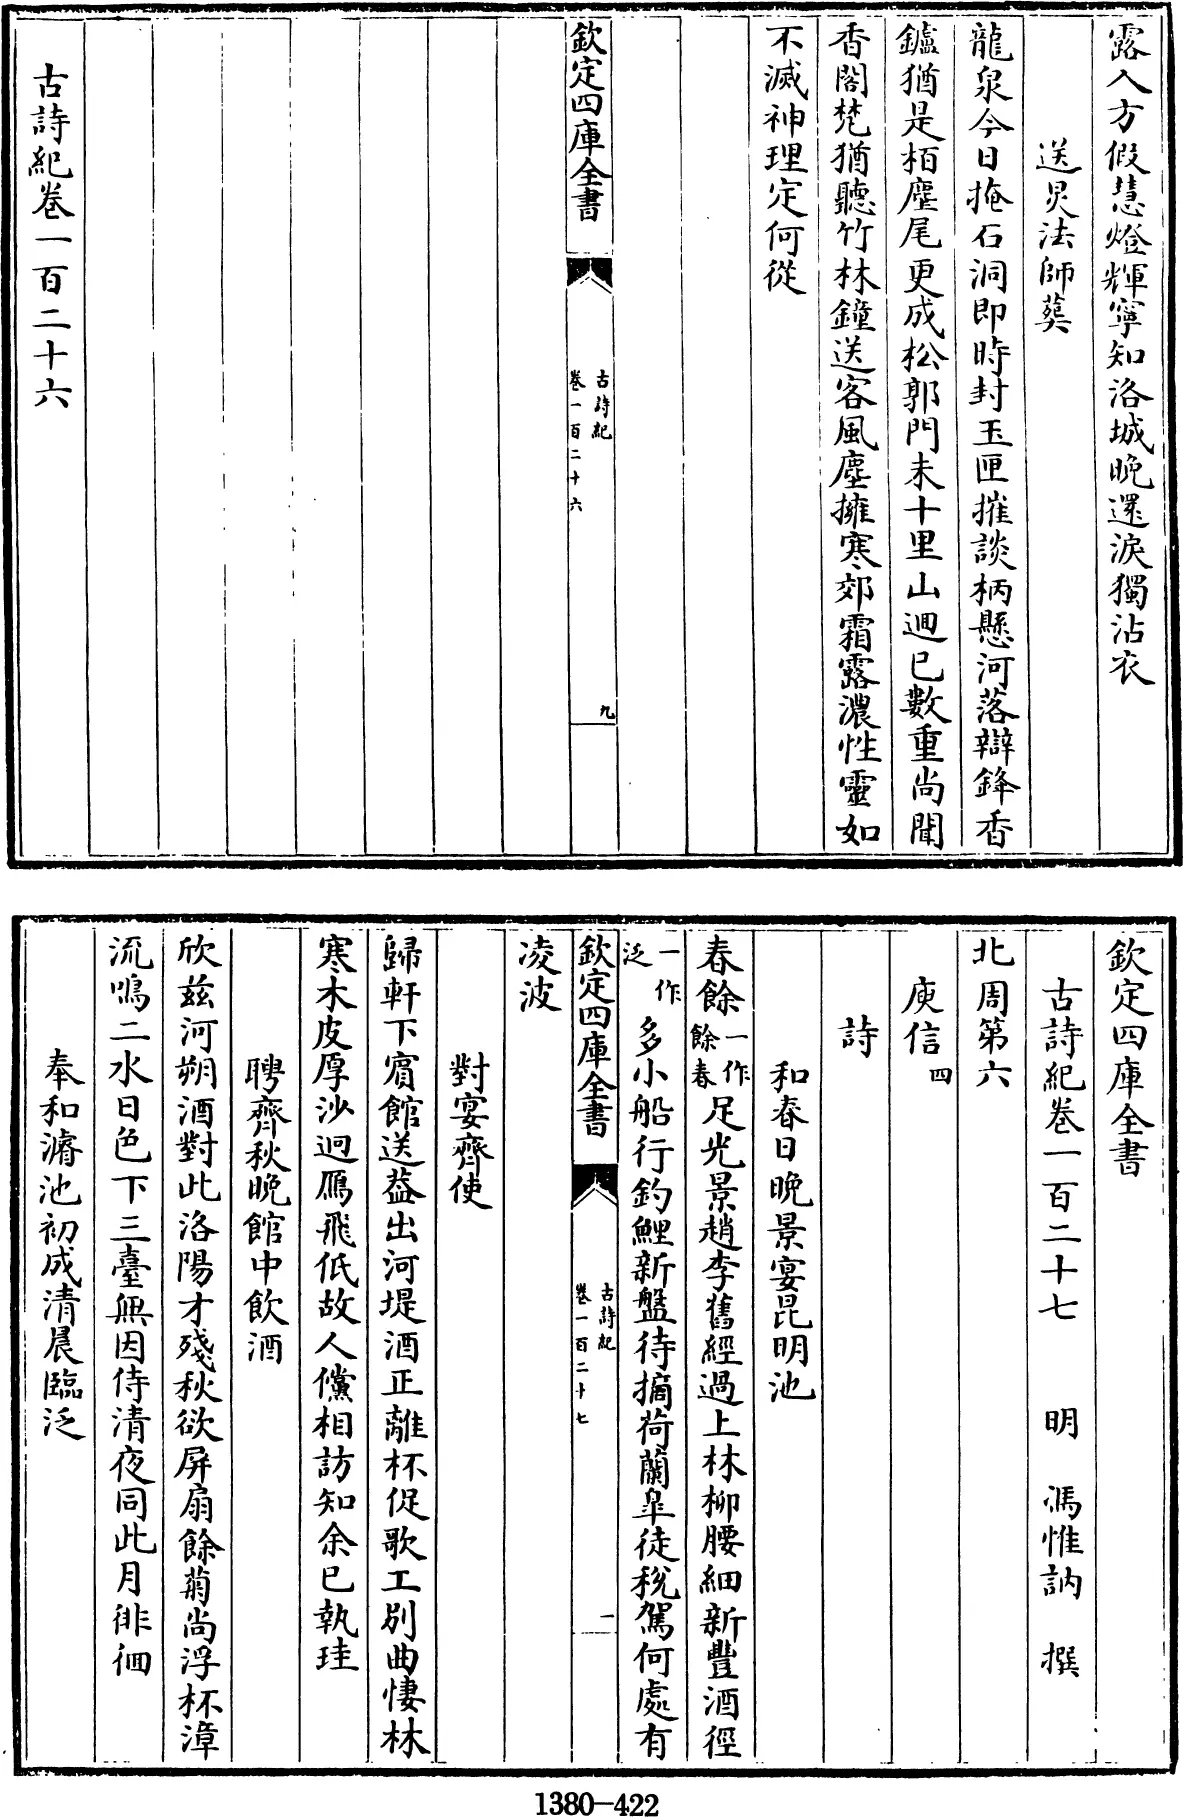 露入方假慧燈輝寧知洛城晚還淚獨沾衣
送炅法師葬
龍泉今日掩石洞即時封玉匣摧談柄懸河落辯鋒香
鑪猶是栢麈尾更成松郭門未十里山迴已數重尚聞
香閣梵猶聽竹林鐘送客風塵擁寒郊霜露濃性靈如
不滅神理定何從
欽定四庫全書
古詩紀
卷一百二十六
九
古詩紀卷一百二十六
欽定四庫全書
古詩紀卷一百二十七 明 馮惟訥 撰
北周第六
庾信四
詩
和春日晚景宴昆明池
春餘一作餘春足光景趙李舊經過上林柳腰細新豐酒徑
一作泛多小船行釣鯉新盤待摘荷蘭臯徒稅駕何處有
欽定四庫全書
古詩紀
卷一百二十七
一
凌波
對宴齊使
歸軒下賓館送葢出河堤酒正離杯促歌工別曲悽林
寒木皮厚沙迴鴈飛低故人儻相訪知余已執珪
聘齊秋晚館中飲酒
欣兹河朔酒對此洛陽才殘秋欲屏扇餘菊尚浮杯漳
流鳴二水日色下三臺無因侍清夜同此月徘徊
奉和濬池初成清晨臨泛
1380-422